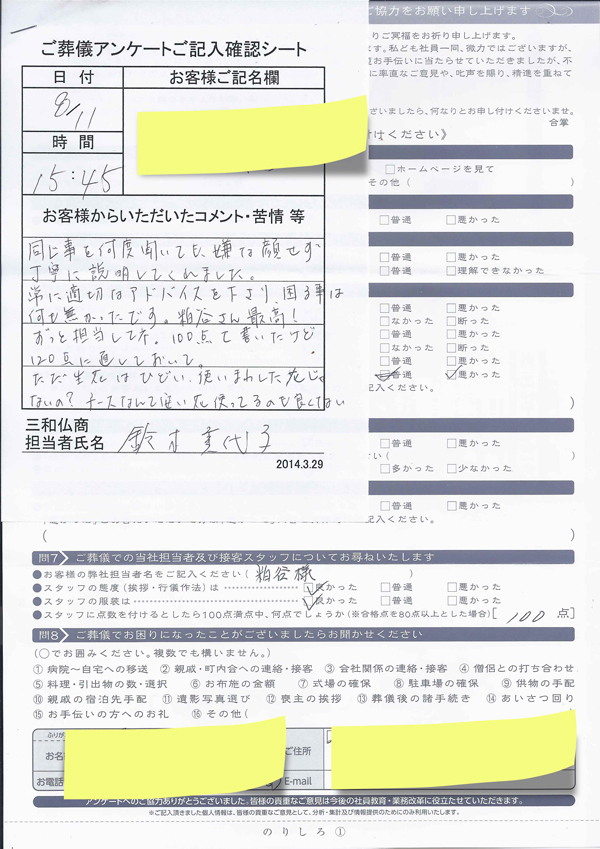 ご協力をお願い申し上げます
ご葬儀アンケートご記入確認シート
日付
お客様ご記名欄
8/11
時間
15:45
お客様からいただいたコメント・苦情 等
同じ事を何度聞いても、嫌な顔せず
丁寧に説明してくれました。
常に適切なアドバイスを下さり、困る事は
何も無かったです。粕谷さん最高!
ずっと担当して下 100点て書いたけど
120点に直しておいて。
ただ生花はひどい、使いまわした花じゃ
ないの? ナースなんて安い花使ってるのも良くない
三和仏商
担当者氏名 鈴木美代子
2014.3.29
りご冥福をお祈り申し上げます。
ます。私ども社員一同、微力ではございますが、
お手伝いに当たらせていただきましたが、不
に率直なご意見や、叱声を賜り、精進を重ねて
ざいましたら、何なりとお申し付けくださいませ。
合掌
付けください》
□ホームページを見て
その他( )
□普通 □悪かった
□普通 □悪かった
□普通 □理解できなかった
□普通 □悪かった
□なかった □断った
□普通 □悪かった
□なかった □断った
□普通 □悪かった
□普通 □悪かった
記入ください。
)
□普通 □悪かった
□多かった □少なかった
□普通 □悪かった
記入ください。
( )
問7 ご葬儀での当社担当者及び接客スタッフについてお尋ねいたします
●お客様の弊社担当者名をご記入ください( 粕谷様 )
●スタッフの態度(挨拶・行儀作法)は □良かった □普通 □悪かった
●スタッフの服装は □良かった □普通 □悪かった
●スタッフに点数を付けるとしたら100点満点中、何点でしょうか(※合格点を80点以上とした場合)[ 100 点]
問8 ご葬儀でお困りになったことがございましたらお聞かせください
(○でお囲みください。複数でも構いません。)
①病院〜自宅への移送 ②親戚・町内会への連絡・接客 ③会社関係の連絡・接客 ④僧侶との打ち合わせ
⑤料理・引出物の数・選択 ⑥お布施の金額 ⑦式場の確保 ⑧駐車場の確保 ⑨供物の手配
⑩親戚の宿泊先手配 ⑪遺影写真選び ⑫喪主の挨拶 ⑬葬儀後の諸手続き ⑭あいさつ回り
⑮お手伝いの方へのお礼 ⑯その他(
ふりが
お名
ご住所
お電話
E-mail
アンケートへのご協力ありがとうございました。皆様の貴重なご意見は今後の社員教育・業務改革に役立たせていただきます。
※ご記入頂きました個人情報は、皆様の貴重なご意見として、分析・集計及び情報提供のためにのみ利用いたします。
のりしろ①